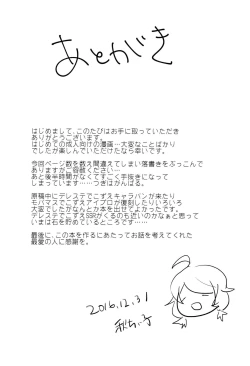 あとがき
はじめまして、このたびはお手に取っていただき
ありがとうございます。
はじめての成人向けの漫画…大変なことばかり
でしたが楽しんでいただけたなら幸いです。
今回ページ数を数え間違えてしまい落書きをぶっこんで
ありますがご容赦ください…
あと後半時間がなくてすごく手抜きになって
しまっています……つぎはがんばる。
原稿中にデレステでこずえキャラバンが来たり
モバマスでこずえアイプロが復刻したりいろいろ
大変でしたがなんとか本を出せてよかったです。
デレステでこずえSSRがくるのも近いのかなぁと思って
いまは石を貯めているところです……
最後に、この本を作るにあたってお話を考えてくれた
最愛の人に感謝を。
2016.12.31